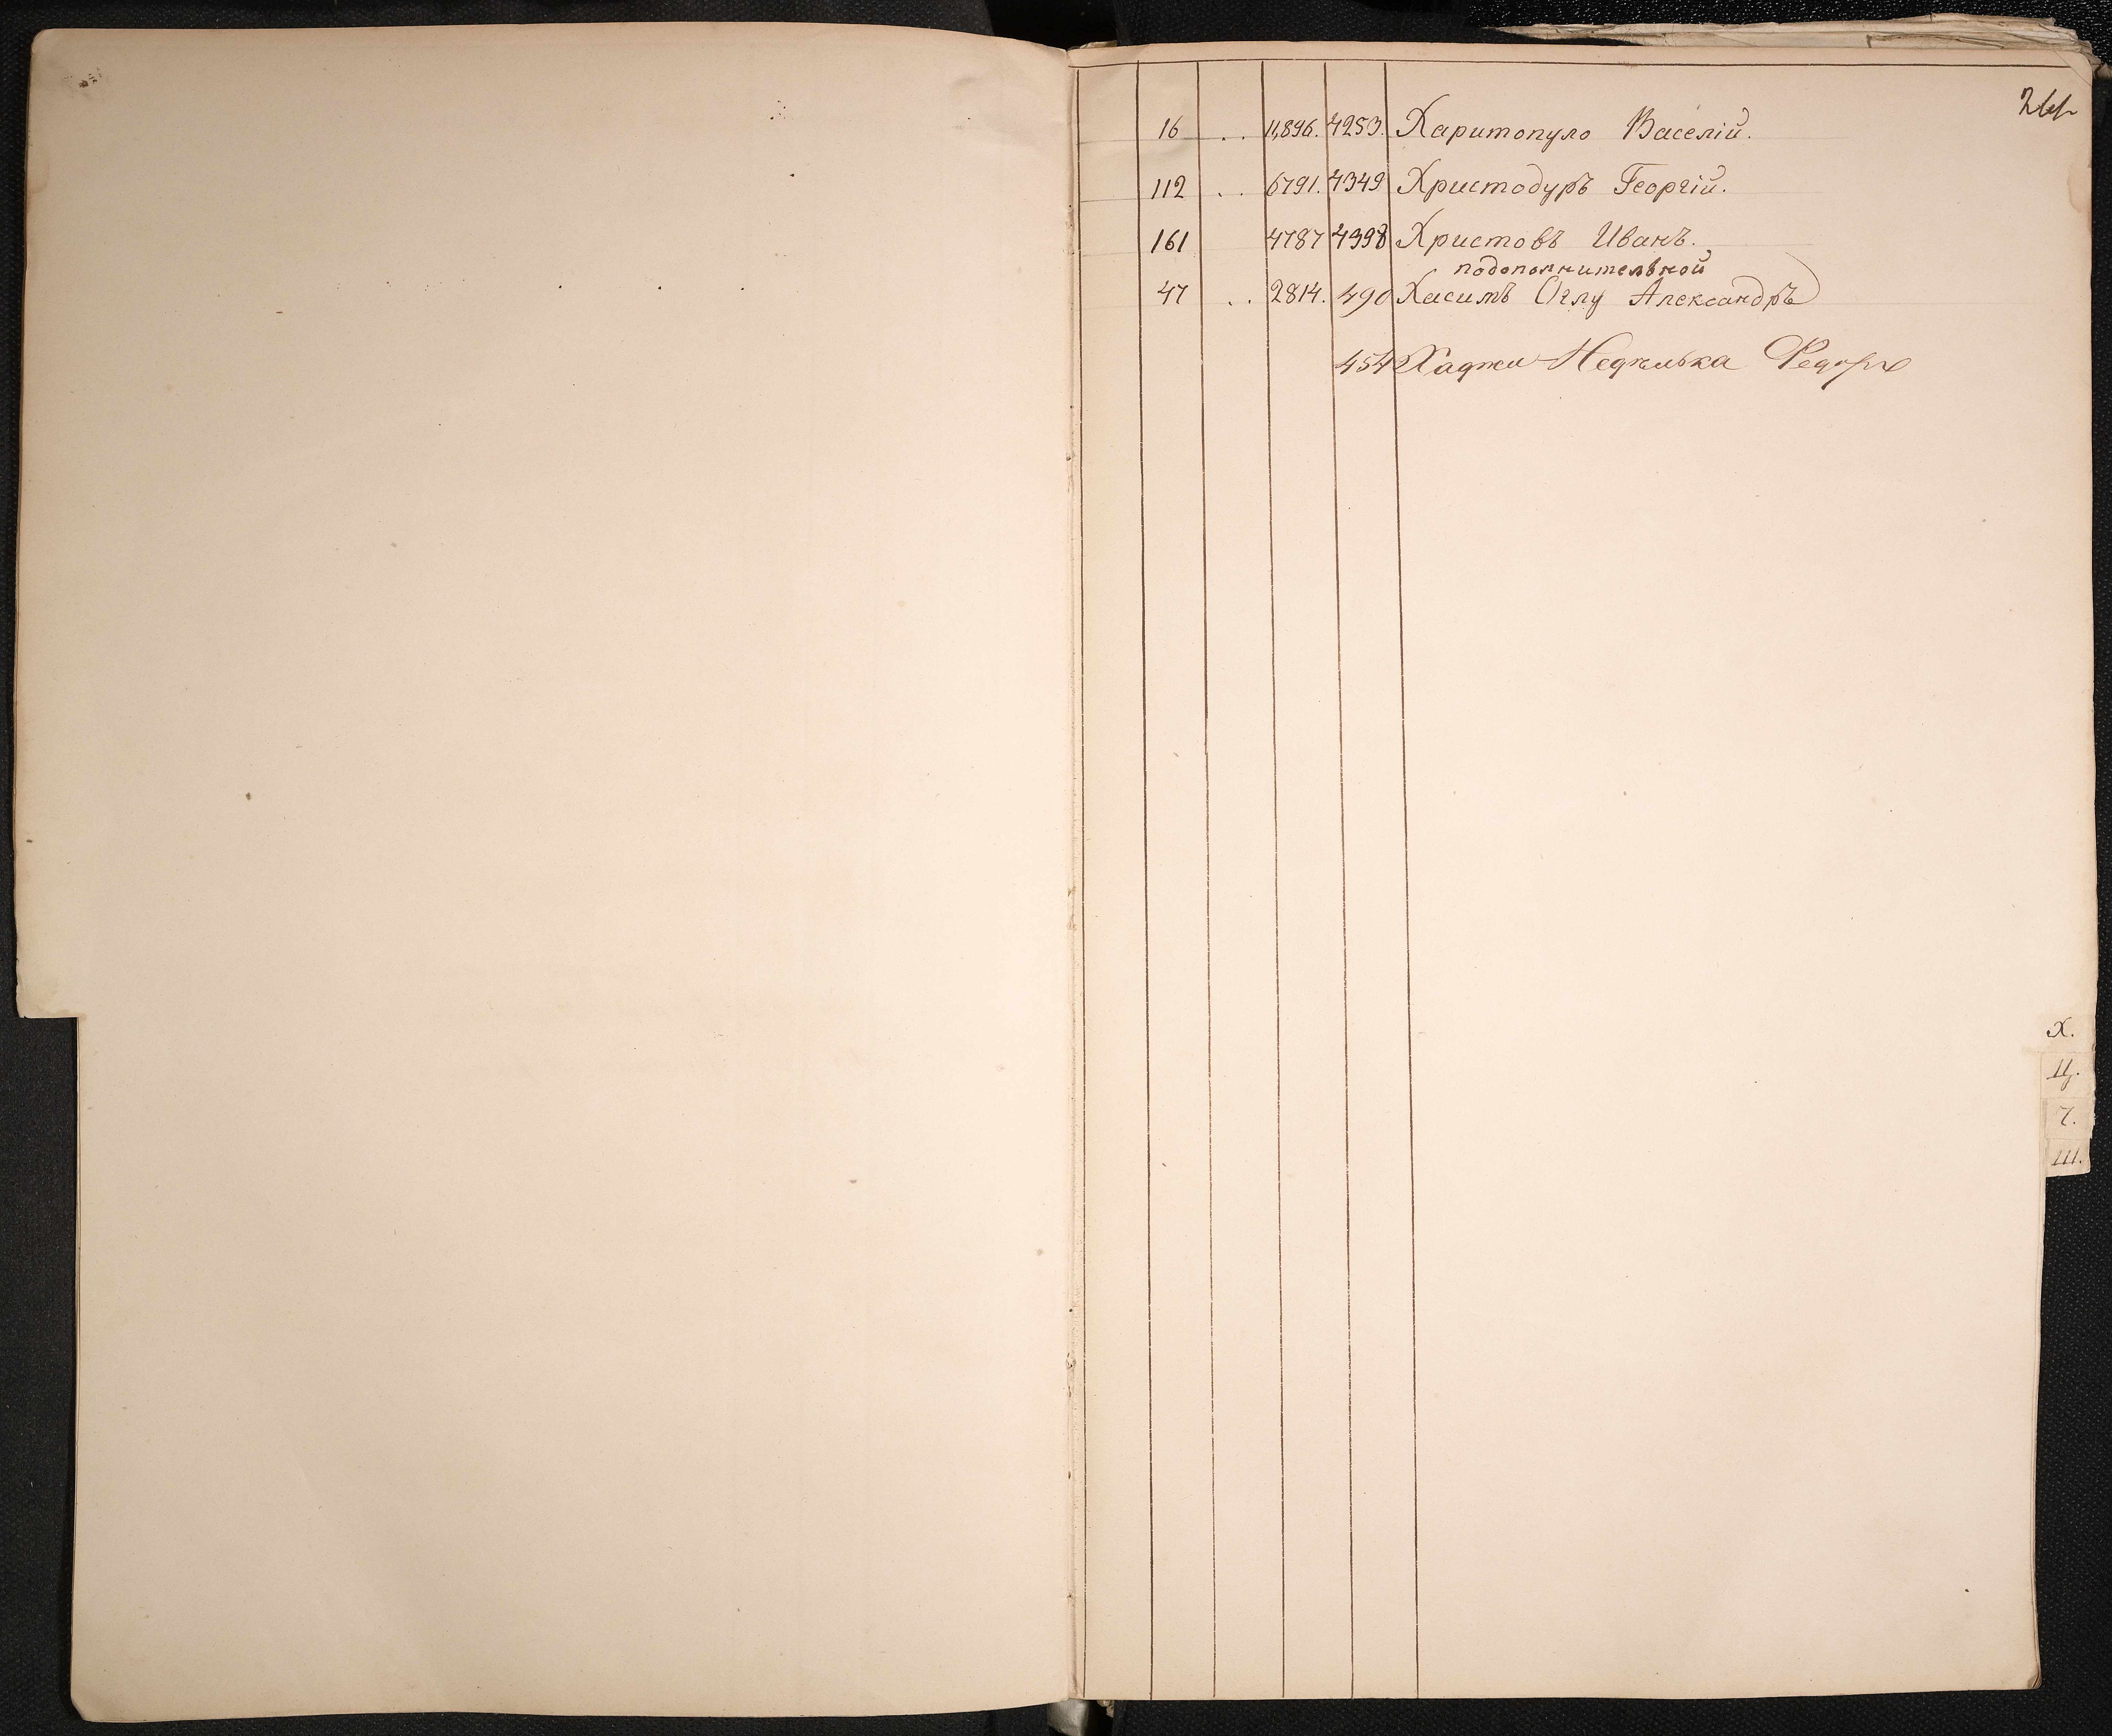 16 . . 11,896. 4253. Харитопуло Васелій.
112 . . 6791. 4349 Христодуръ Георгій.
161 4787 4398 Христовъ Иванъ.
подополнительной
47 . . 2814. 490 Хасимъ Оглу Александръ
454 Хаджи Недѣлька Федоръ
Х.
Ц.
Ч.
Ш.